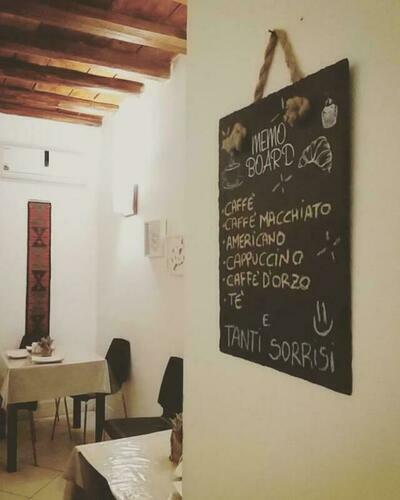 MEMO
BOARD
· CAFFÈ
· CAFFÈ MACCHIATO
· AMERICANO
· CAPPUCCINO
· CAFFÈ D'ORZO
· TÈ
E
TANTI SORRISI